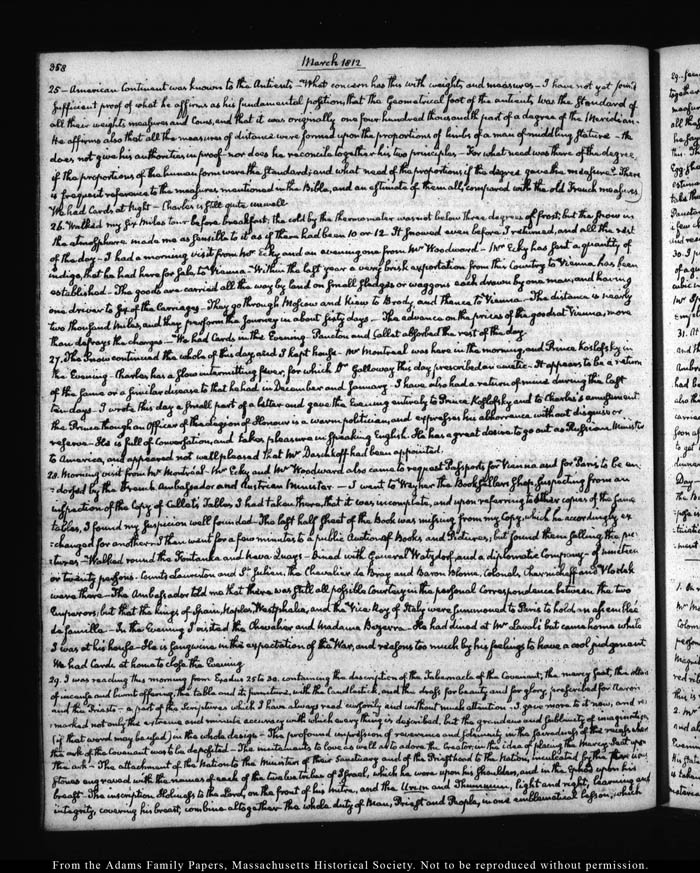 358
March 1812
25 — American Continent was known to the Antients — What concern has this with weights, and measures — I have not yet found
sufficient proof of what he affirms as his fundamental position, that the Geometrical foot of the antients was the Standard of
all their weights measures and Coins, and that it was originally one four hundred thousandth part of a degree of the Meridian.
He affirms also that all the measures of distance were formed upon the proportions of limbs of a man of middling stature — He
does not give his authorities in proof — nor does he reconcile together his two principles — For what need was there of the degree,
if the proportions of the human form were the Standard; and what need of the proportions if the degree gave the measure? There
is frequent reference to the measures mentioned in the Bible, and an estimate of them all, compared with the old French measures
We had Cards at Night — Charles is still quite unwell
26. Walked my six Miles tour before breakfast; the cold by the thermometer was not below three degrees of frost, but the snow in
the atmosphere made me as sensible to it as if there had been 10 or 12. It snowed even before I returned, and all the rest
of the day — I had a morning visit from Mr Eeky and an evening one from Mr Woodward — Mr Eeky has sent a quantity of
indigo, that he had here for sale to Vienna — Within the last year a very brisk exportation from this Country to Vienna has been
established — The goods are carried all the way by land on small sledges or waggons each drawn by one man, and having
one driver to of the Carriages — They go through Moscow and Kiew to Brody, and thence to Vienna — The distance is nearly
two thousand Miles, and they perform the Journey in about sixty days — The advance on the prices of the goods at Vienna, more
than defrays the charges — We had Cards in the Evening. Paucton and Callet absorbed the rest of the day.
27. The Snow continued the whole of this day and I kept house. Mr Montreal was here in the morning and Prince Koslofsky in
the Evening — Charles has a slow intermitting fever, for which Dr Galloway this day prescribed an emetic — It appears to be a return
of the same or a similar disease to that he had in December and January — I have also had a return of mine during this last
ten days — I wrote this day a small part of a letter and gave the Evening entirely to Prince Koslofsky and to Charles's amusement.
the Prince though an Officer of the Legion of Honour is a warm politician, and expresses his abhorrence without disguise or
reserve — He is full of Conversation, and takes pleasure in speaking English. He has a great desire to go out as Russian Minister
to America, and appeared not well pleased that Mr Daschkoff had been appointed.
28. Morning visit from Mr Montréal — Mr Eeky and Mr Woodward also came to request Passports for Vienna and for Paris to be en-
dorsed by the French Ambassador and Austrian Minister — I went to Weyher the Booksellers Shop, suspecting from an
inspection of the Copy of Callet's Tables I had taken there, that it was incomplete, and upon referring to other copies of the same
tables, I found my suspicion well founded — The last half sheet of the Book was missing from my Copy, which he accordingly ex-
changed for another. I then went for a few minutes to a public Auction of Books and Pictures, but found them selling the pic-
tures — Walked round the Fontanka and Neva Quays — Dined with General Watzdorf, and a diplomatic Company — of nineteen
or twenty persons. Counts Lauriston and St Julien, the Chevalier de Bray and Baron Blome. Colonels Chernicheff and Vlodek
were there — The Ambassador told me that there was still all possible Courtesy in the personal Correspondence between the two
Emperors; but that the kings of Spain, Naples, Westphalia, and the Vice Roy of Italy were summoned to Paris to hold an assemblée
de famille — In the Evening I visited the Chevalier and Madame Bezerra. He had dined at Mr Laval's but came home while
I was at his house. He is sanguine in the expectation of the War, and reasons too much by his feelings to have a cool judgement
We had Cards at home to close the Evening
29. I was reading this morning from Exodus 25 to 30. containing the description of the Tabernacle of the Covenant; the mercy seat, the altars
of incense and burnt offering, the table and its furniture, with the Candlestick, and the dress for beauty and for glory prescribed for Aaron
and the Priests — a part of the Scriptures which I have always read cursorily and without much attention — I gave more to it now, and re-
marked not only the extreme and minute accuracy with which every thing is described, but the grandeur and sublimity of imagination,
(if that word may be used) in the whole design — The profound impression of reverence and solemnity in the sacredness of the recess where
the ark of the covenant was to be deposited — The incitements to love as well as to adore the Creator, in the idea of placing the Mercy Seat upon
the ark — The attachment of the Nation to the Ministers of their Sanctuary and of the Priesthood to the Nation, inculcated by the
stones engraved with the names of each of the twelve tribes of Israel, which he wore upon his shoulders, and in the Ephod upon his
breast — The inscription, Holiness to the Lord, on the front of his mitre, and the Urim and Thummim, light and right, learning and
integrity, covering his breast, combine altogether the whole duty of Man, Priest and People, in one emblematical lesson, which
From the Adams Family Papers, Massachusetts Historical Society. Not to be reproduced without permission.